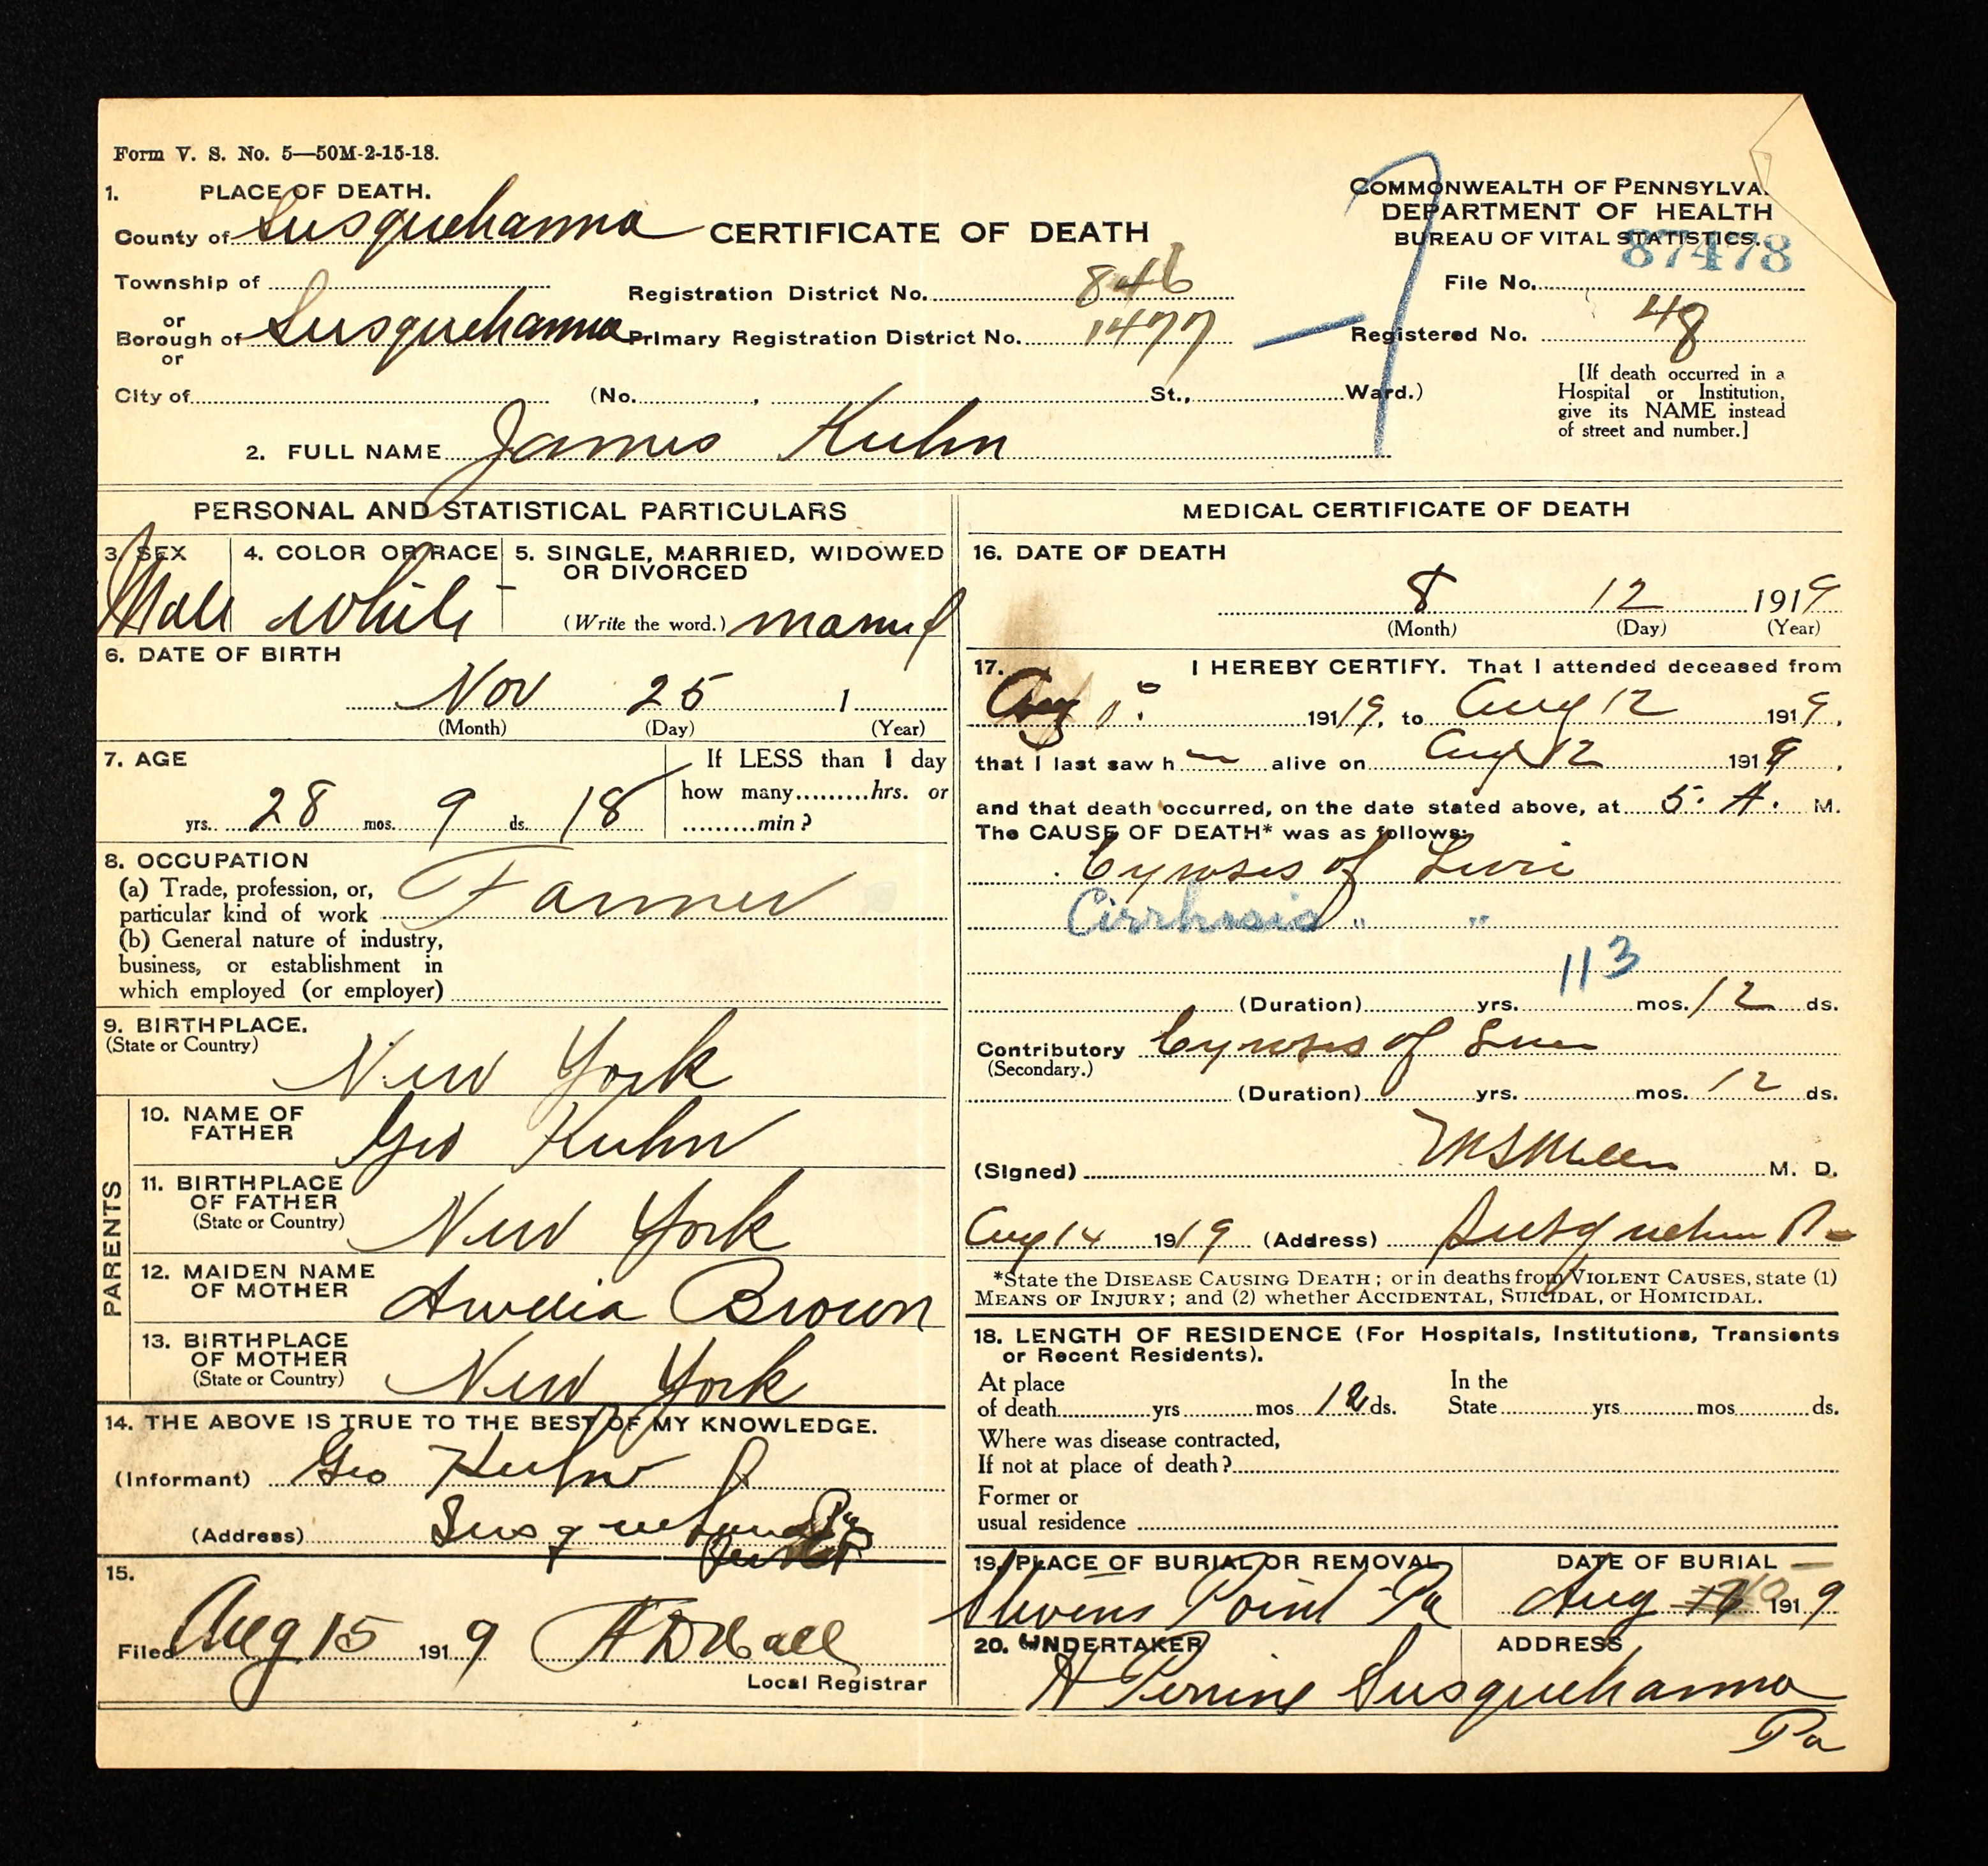 Form V. S. No. 5—50M-2-15-18.
1. PLACE OF DEATH.
County of Susquehanna
CERTIFICATE OF DEATH
COMMONWEALTH OF PENNSYLVA
DEPARTMENT OF HEALTH
BUREAU OF VITAL STATISTICS.
87478
Township of
Registration District No. 846
File No.
or
Borough of Susquehanna Primary Registration District No. 1477
Registered No. 48
or
City of (No. , St., Ward.)
[If death occurred in a
Hospital or Institution,
give its NAME instead
of street and number.]
2. FULL NAME James Kuhn
PERSONAL AND STATISTICAL PARTICULARS
3. SEX
Male
4. COLOR OR RACE
White
5. SINGLE, MARRIED, WIDOWED
OR DIVORCED
(Write the word.) married
6. DATE OF BIRTH
Nov 25 1
(Month) (Day) (Year)
7. AGE
yrs. 28 mos. 9 ds. 18
If LESS than 1 day
how many.........hrs. or
.........min?
8. OCCUPATION
(a) Trade, profession, or,
particular kind of work Farmer
(b) General nature of industry,
business, or establishment in
which employed (or employer)
9. BIRTHPLACE.
(State or Country)
New York
PARENTS
10. NAME OF
FATHER
Geo Kuhn
11. BIRTHPLACE
OF FATHER
(State or Country)
New York
12. MAIDEN NAME
OF MOTHER
Brown
13. BIRTHPLACE
OF MOTHER
(State or Country)
New York
14. THE ABOVE IS TRUE TO THE BEST OF MY KNOWLEDGE.
(Informant) Geo Kuhn
(Address) Susquehanna Pa
15.
Filed Aug 15 1919
Local Registrar
MEDICAL CERTIFICATE OF DEATH
16. DATE OF DEATH
8 12 1919
(Month) (Day) (Year)
17. I HEREBY CERTIFY. That I attended deceased from
Aug 1919, to Aug 12 1919,
that I last saw h alive on Aug 12 1919,
and that death occurred, on the date stated above, at 5: A. M.
The CAUSE OF DEATH* was as follows:
Cyroses of Liver
Cirrhosis " "
113
(Duration) yrs. mos. 12 ds.
Contributory Cyroses of Liver
(Secondary.)
(Duration) yrs. mos. 12 ds.
(Signed) M. D.
Aug 14 1919 (Address) Susquehanna Pa
*State the DISEASE CAUSING DEATH; or in deaths from VIOLENT CAUSES, state (1)
MEANS OF INJURY; and (2) whether ACCIDENTAL, SUICIDAL, or HOMICIDAL.
18. LENGTH OF RESIDENCE (For Hospitals, Institutions, Transients
or Recent Residents).
At place
of death yrs mos 12 ds.
In the
State yrs mos ds.
Where was disease contracted,
If not at place of death?
Former or
usual residence
19. PLACE OF BURIAL OR REMOVAL
Stevens Point Pa
DATE OF BURIAL
Aug 1919
20. UNDERTAKER
H Perrine
ADDRESS
Susquehanna
Pa